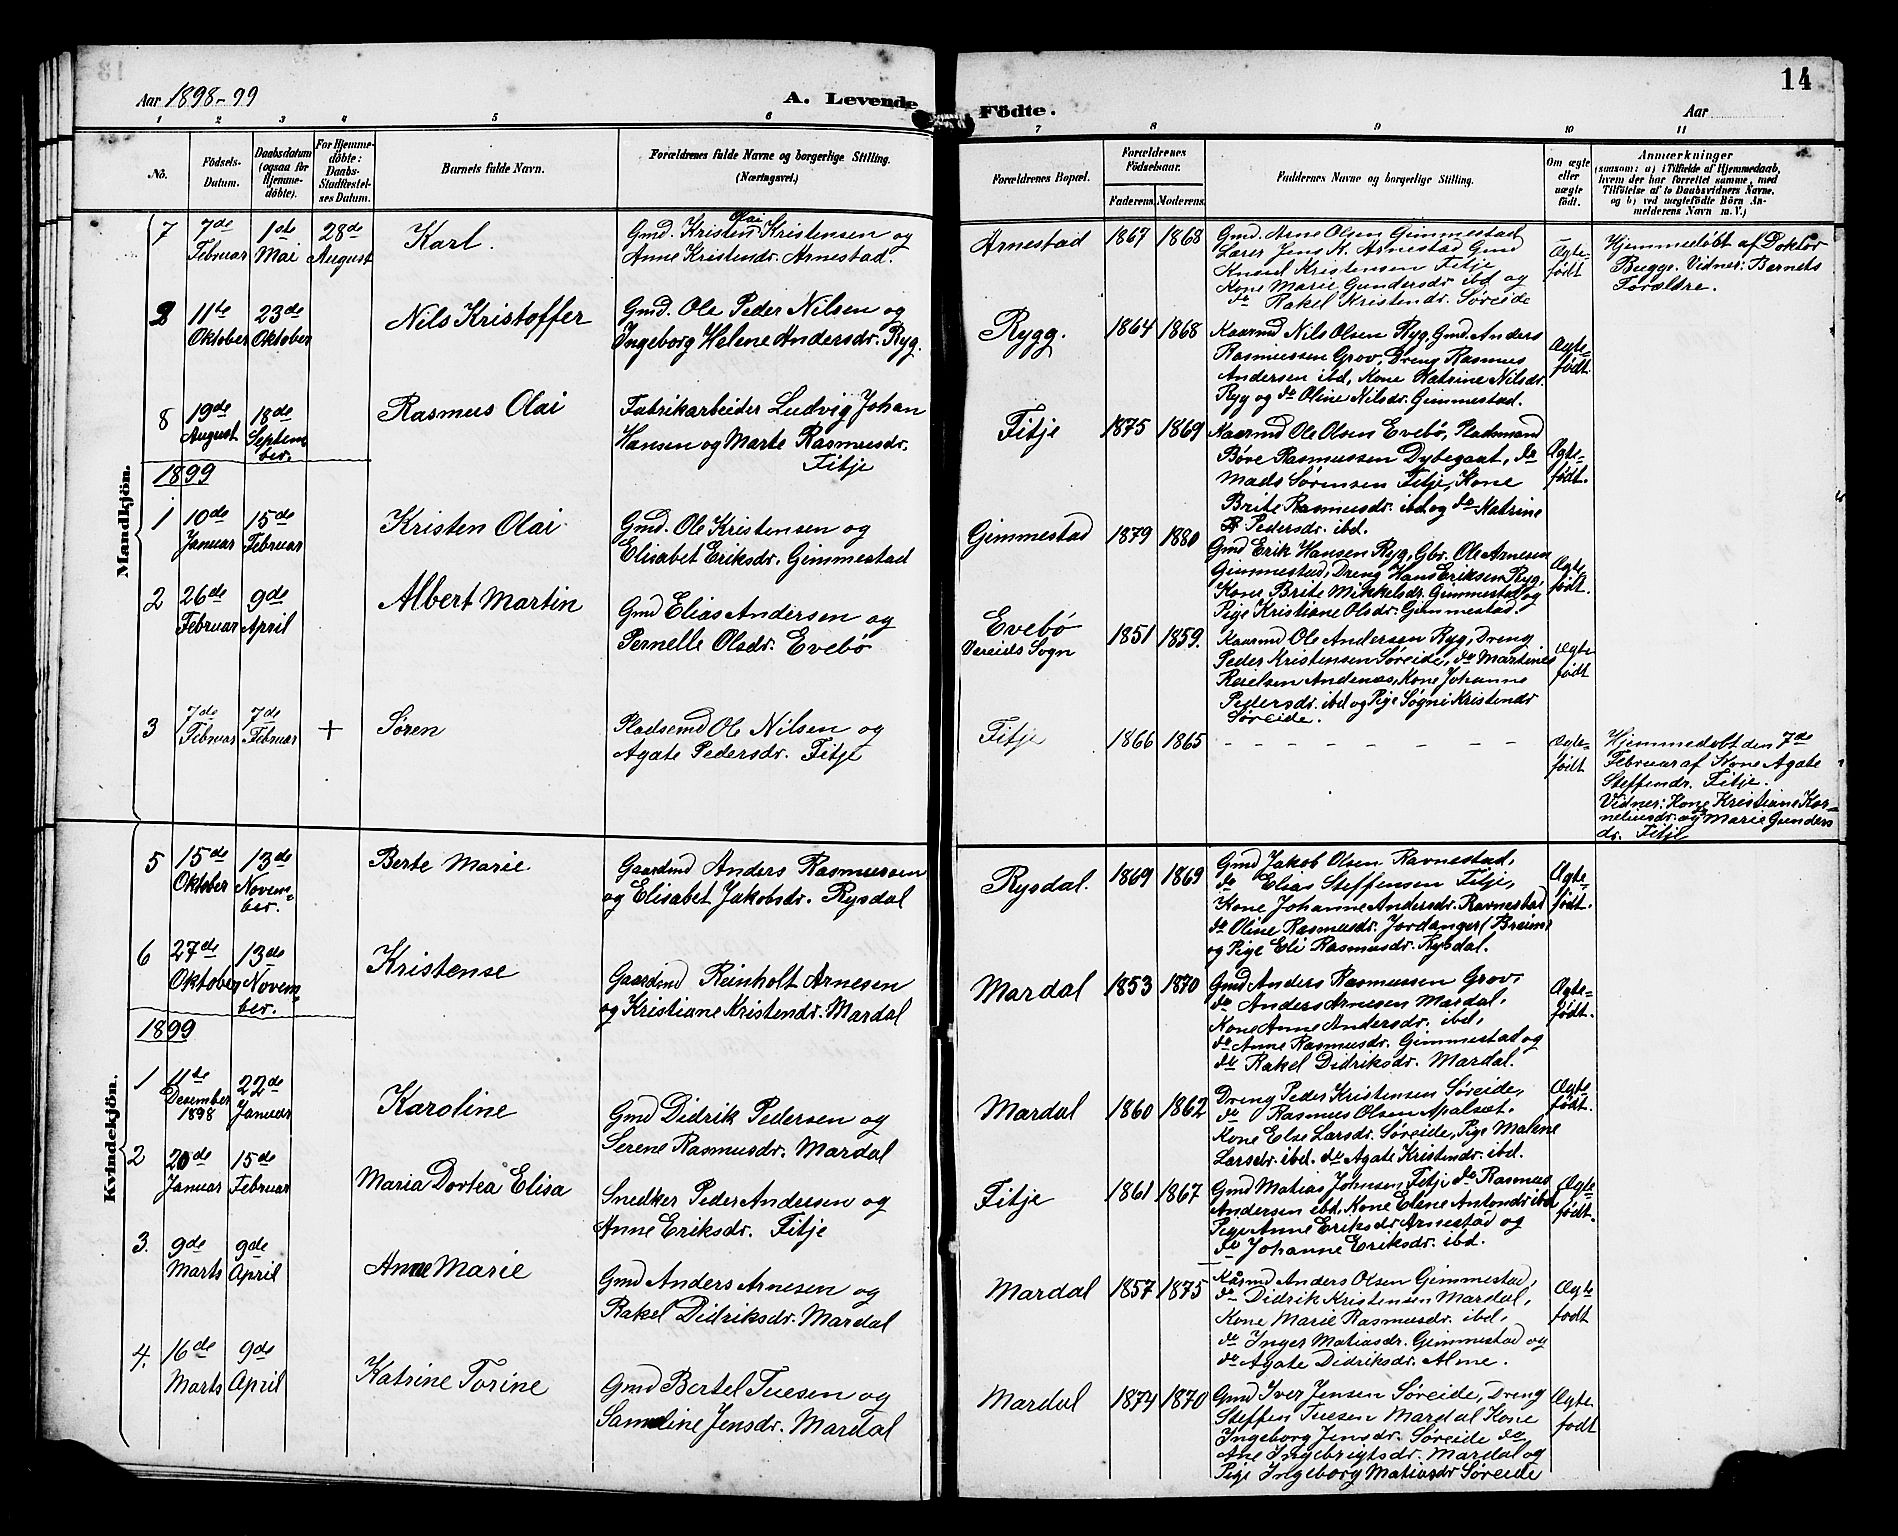 Aar 1898-99
A. Levende
Födte.
14
Aar
1 2 3 4 5 6 7 8 9 10 11
No.
Födsels-
Datum.
Daabsdatum
(ogsaa for
Hjemme-
döbte).
For Hjemme-
döbte:
Daabs-
Stadfæstel-
ses Datum.
Barnets fulde Navn.
Forældrenes fulde Navne og borgerlige Stilling.
(Næringsvei.)
Forældrenes Bopæl.
Forældrenes
Födselsaar.
Faderens. Moderens.
Faddernes Navne og borgerlige Stilling.
Om ægte
eller
uægte
födt.
Anmærkninger
(saasom: a) i Tilfælde af Hjemmedaab,
hvem der har forrettet samme, med
Tilföielse af to Daabsvidners Navne,
og b) ved uægtefödte Börn An-
melderens Navn m. V.)
Mandkjön.
7
7de
Februar
1ste
Mai
28de
August
Karl.
Gmd. Kristen Olai Kristensen og
Anne Kristendr. Arnestad.
Arnestad
1867 1868
Gmd. Arne Olsen Gimmestad
Lærer Jens K. Arnestad Gmd
Knud Kristensen Fitje
Kone Marie Gundersdr ibd og
do Rakel Kristendr. Søreide
Ægte-
født
Hjemmedøbt af Doktor
Bugge. Vidner: Barnets
Forældre.
8
11te
Oktober
23de
Oktober
Nils Kristoffer
Gmd. Ole Peder Nilsen og
Ingeborg Helene Andersdr. Ryg.
Rygg.
1864 1868
Kaarmd Nils Olsen Ryg, Gmd. Anders
Rasmussen Grov, Dreng Rasmus
Andersen ibd, Kone Katrine Nilsdr.
Ryg og do Oline Nilsdr. Gimmestad.
Ægte-
født.
8
19de
August
18de
Septem
ber.
Rasmus Olai
Fabrikarbeider Ludvig Johan
Hansen og Marte Rasmusdr.
Fitje
Fitje
1875 1869
Kaarmd Ole Olsen Evebø, Pladsmand
Børe Rasmussen Dybegaat, do
Mads Sørensen Fitje, Kone
Brite Rasmusdr. ibd og do Katrine
Pedersdr. ibd.
Ægte-
født.
1899
1
10de
Januar
15de
Februar
Kristen Olai
Gmd. Ole Kristensen og
Elisabet Eriksdr. Gimmestad
Gimmestad
1879 1880
Gmd Erik Hansen Ryg, Gbr. Ole Arnesen
Gimmestad, Dreng Hans Eriksen Ryg,
Kone Brite Mikkelsdr. Gimmestad og
Pige Kristiane Olsdr. Gimmestad.
Ægte
født.
2
26de
Februar
9de
April
Albert Martin
Gmd Elias Andersen og
Pernelle Olsdr. Evebø
Evebø
Vereids Sogn
1851 1859.
Kaarmd Ole Andersen Ryg, Dreng
Peder Kristensen Søreide, do Martines
Andenæs, Kone Johanne
Pedersdr. ibd og Pige Søgni Kristendr
Søreide.
Ægte
født
3
7de
Februar
7de
Februar
+
Søren
Pladsemd Ole Nilsen og
Agate Pedersdr. Fitje
Fitje
1866 1865
- - - - - - - -
Ægte-
født
Hjemmedøbt den 7de
Februar af Kone Agate
Steffendr. Fitje.
Vidner: Kone Kristiane Kor-
neliusdr. og Marie Gunders
dr. Fitje
Kvindekjön.
5
15de
Oktober
13de
Novem-
ber.
Berte Marie
Gaardmd Anders Rasmussen
og Elisabet Jakobsdr. Rysdal
Rysdal.
1869 1869
Gmd Jakob Olsen Ravnestad,
do Elias Steffensen Fitje,
Kone Johanne Andersdr. Ravnestad
do Oline Rasmusdr. Jordanger (Breim
og Pige Eli Rasmusdr. Rysdal.
Ægte-
født.
6
27de
Oktober
13de
Novem-
ber.
Kristense
Gaardmd Reinholt Arnesen
og Kristiane Kristendr. Mardal
Mardal
1853 1870
Gmd Anders Rasmussen Grov,
do Anders Arnesen Mardal,
Kone Anne Andersdr. ibd,
do Anne Rasmusdr. Gimmestad og
do Rakel Didriksdr. Mardal.
Ægte-
født.
1899
1
11te
Desember
1898
22de
Januar
Karoline
Gmd Didrik Pedersen og
Serene Rasmusdr. Mardal
Mardal
1860 1862
Dreng Peder Kristensen Søreide,
do Rasmus Olsen Apalset.
Kone Else Larsdr. Søreide, Pige Malene
Larsdr. ibd. do Agate Kristendr. ibd.
Ægte
født.
2
20de
Januar
15de
Februar
Maria Dortea Elisa
Snedker Peder Andresen og
Anne Eriksdr. Fitje
Fitje
1861 1867
Gmd Matias Jonsen Fitje do Rasmus
Andersen ibd, Kone Eline Antondr. ibd
Pige Anne Eriksdr Arnestad og
do Johanne Eriksdr. ibd.
Ægte
født.
3.
9de
Marts
9de
April
Anne Marie
Gmd Anders Arnesen og
Rakel Didriksdr. Mardal
Mardal
1857 1875
Kårmd Anders Olsen Gimmestad,
do Didrik Kristensen Mardal,
Kone Marie Rasmusdr. ibd,
do Inger Matiasdr. Gimmestad og
do Agate Didriksdr. Alme.
Ægte
født
4.
16de
Marts
9de
April
Katrine Torine
Gmd Bertel Tuesen og
Samuline Jensdr. Mardal
Mardal
1874 1870
Gmd Iver Jensen Søreide, Dreng
Steffen Tuesen Mardal Kone
Ingeborg Jensdr. Søreide do
Ane Ingebrigtsdr. Mardal og
Pige Ingeborg Matiasdr Søreide
Ægte
født